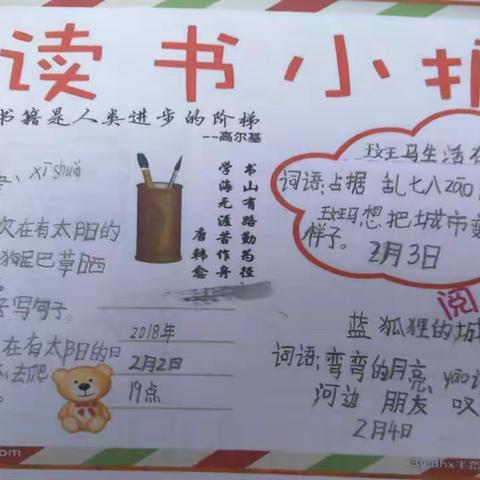 读书小
书籍是人类进步的阶梯
--高尔基
书山有路勤为径
学海无涯苦作舟
唐 韩愈
xǐ shuā
次在有太阳的
狗尾巴草晒
写句子。
在有太阳的日
去爬
2018年
2月2日
19点
玟玟马生活在
词语:占据 乱七八zāo
玟玛想把城市变
样子。
2月3日
阅
蓝狐狸的城
词语:弯弯的月亮, yāo
河边 朋友 叹
2月4日
.com